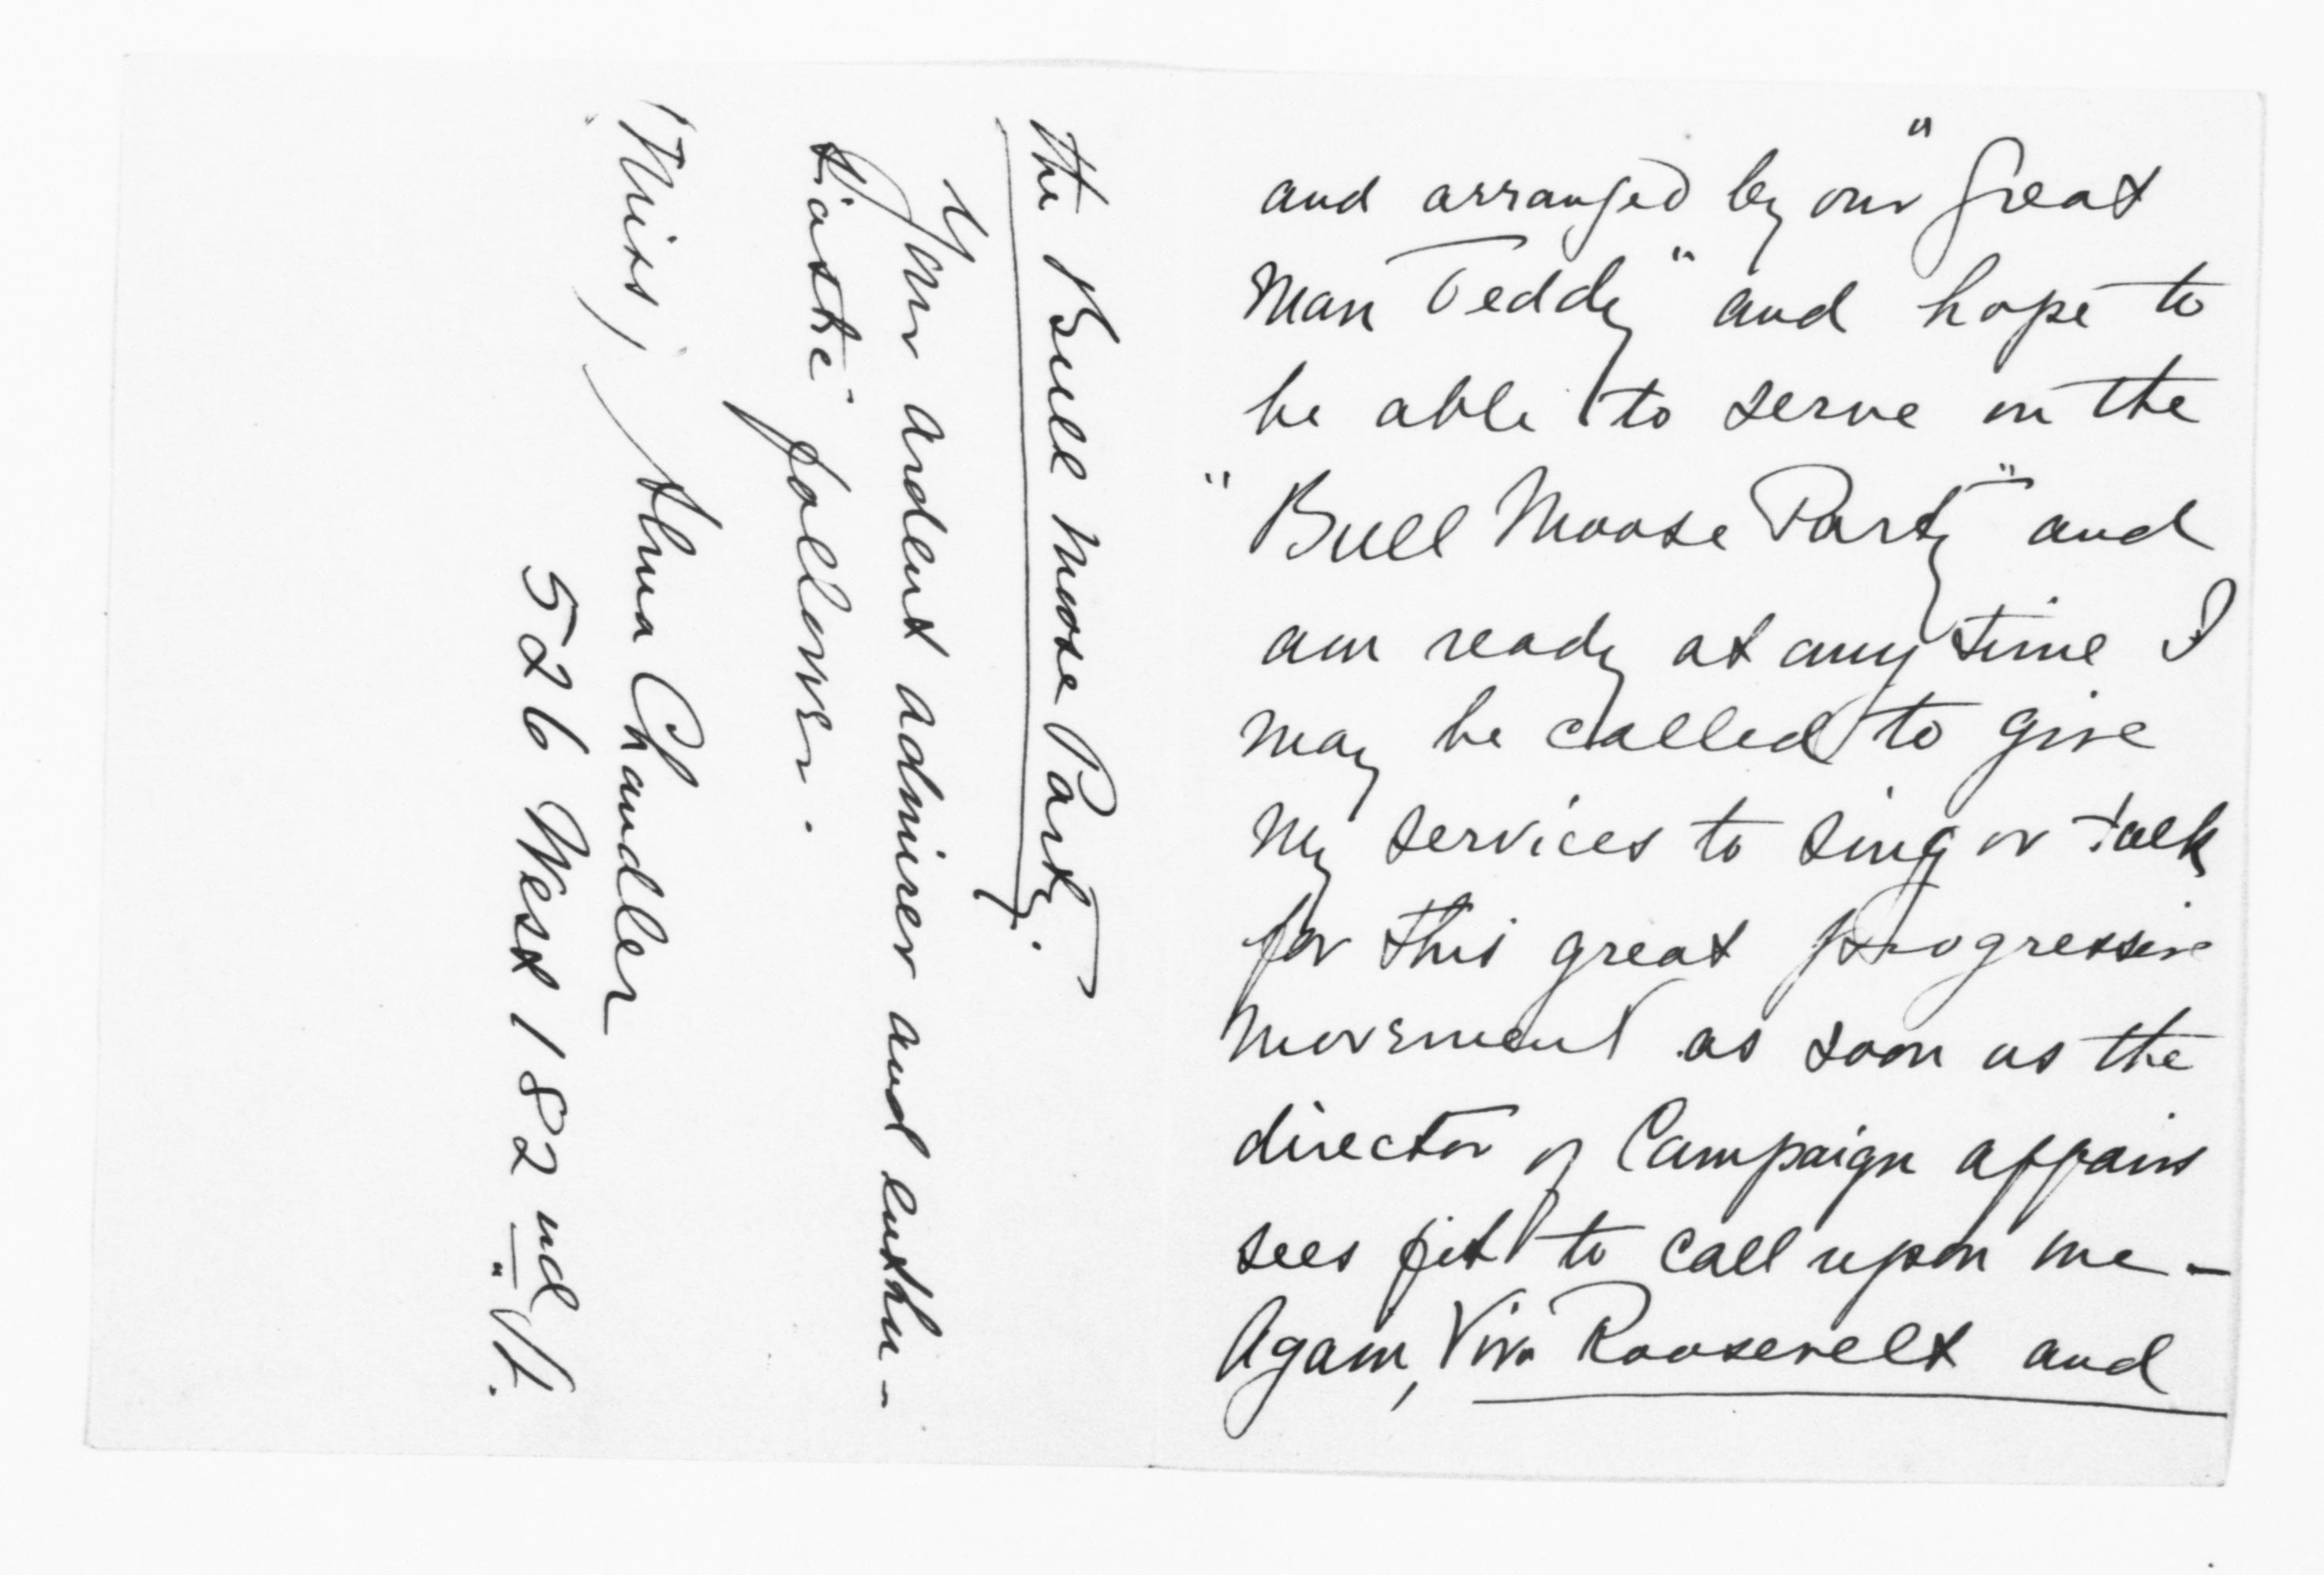 and arranged by our "Great
Man Teddy" and hope to
be able to serve in the
"Bull Moose Party" and
am ready at any time I
may be called to give
my services to sing or talk
for this great progressive
movement as soon as the
director of Campaign affairs
sees fit to call upon me -
Again, Viva Roosevelt and
the Bull Moose Party.
Your ardent admirer and enthu-
siastic follower.
(Miss) Alma Chandler
526 West 182nd St.